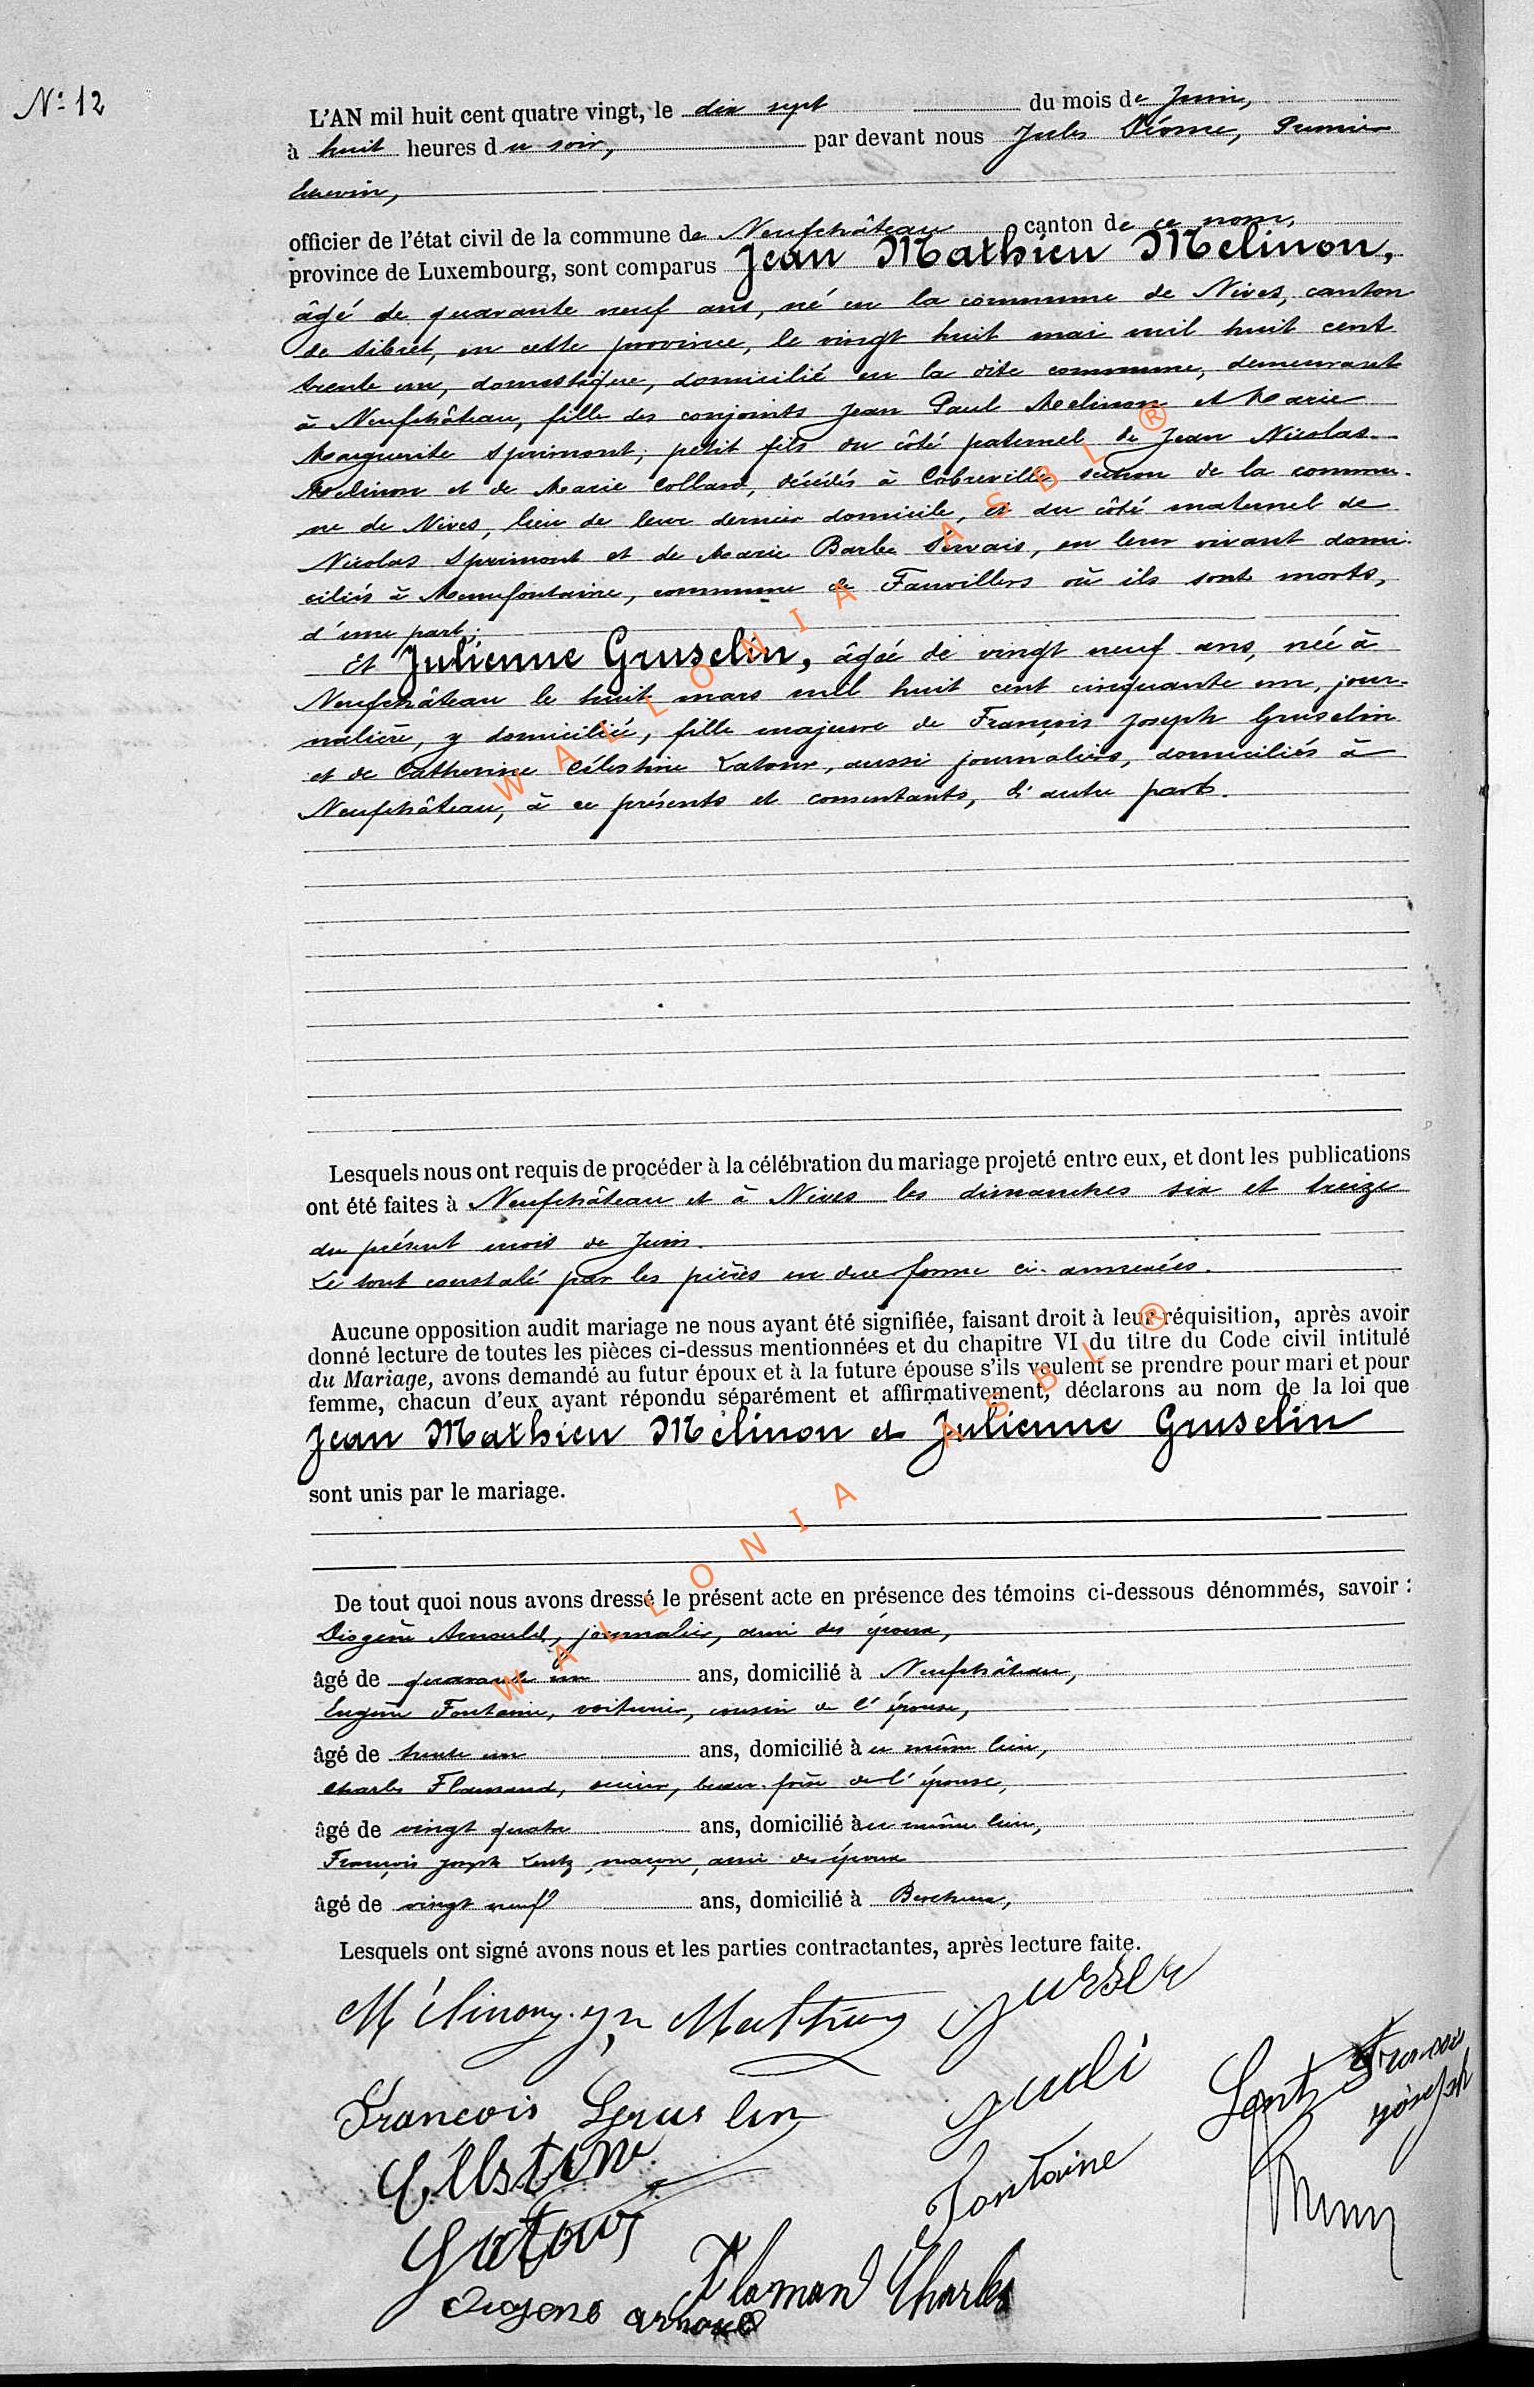 Nº 12
L'AN mil huit cent quatre vingt, le dix sept du mois de Juin,
à huit heures du soir, par devant nous Jules Déome, Premier
Echevin,
officier de l'état civil de la commune de Neufchâteau canton de ce nom,
province de Luxembourg, sont comparus Jean Mathieu Mélinon,
âgé de quarante neuf ans, né en la commune de Nives, canton
de Sibret, en cette province, le vingt huit mai mil huit cent
trente un, domestique, domicilié en la dite commune, demeurant
à Neufchâteau, fille des conjoints Jean Paul Mélinon et Marie
Marguerite Sprimont; petit fils du côté paternel de Jean Nicolas
Mélinon et de Marie Collard, décédés à Cobreville section de la commu-
ne de Nives, lieu de leur dernier domicile, et du côté maternel de
Nicolas Sprimont et de Marie Barbe Servais, en leur vivant domi-
ciliés à Menufontaine, commune de Fauvillers où ils sont morts,
d'une part;
Et Julienne Gruselin, âgée de vingt neuf ans, née à
Neufchâteau le huit mars mil huit cent cinquante un, jour-
nalière, y domiciliée, fille majeure de François Joseph Gruselin
et de Catherine Célestine Latour, aussi journaliers, domiciliés à
Neufchâteau, à ce présents et consentants, d'autre part.
Lesquels nous ont requis de procéder à la célébration du mariage projeté entre eux, et dont les publications
ont été faites à Neufchâteau et à Nives les dimanches six et treize
du présent mois de Juin.
Le tout constaté par les pièces en due forme ci-annexées.
Aucune opposition audit mariage ne nous ayant été signifiée, faisant droit à leur réquisition, après avoir
donné lecture de toutes les pièces ci-dessus mentionnées et du chapitre VI du titre du Code civil intitulé
du Mariage, avons demandé au futur époux et à la future épouse s'ils veulent se prendre pour mari et pour
femme, chacun d'eux ayant répondu séparément et affirmativement, déclarons au nom de la loi que
Jean Mathieu Mélinon et Julienne Gruselin
sont unis par le mariage.
De tout quoi nous avons dressé le présent acte en présence des témoins ci-dessous dénommés, savoir :
Diogène Arnould, journalier, ami des époux,
âgé de quarante un ans, domicilié à Neufchâteau,
Eugène Fontaine, voiturier, cousin de l'épouse,
âgé de trente un ans, domicilié à ce même lieu,
Charles Flamand, beau-frère de l'épouse,
âgé de vingt quatre ans, domicilié à ce même lieu,
François Joseph Lentz, maçon, ami des époux
âgé de vingt neuf ans, domicilié à Bercheux,
Lesquels ont signé avons nous et les parties contractantes, après lecture faite.
Mélinon Mathieu
François Gruslin
Fontaine
Lentz François
Joseph
Latour
Flamand Charles
Diogene Arnould
WALLONIA ASBL ®
WALLONIA ASBL ®